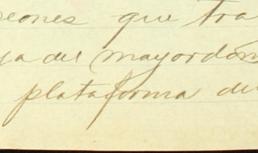 peones que tra
ja del mayordom
plataforma de